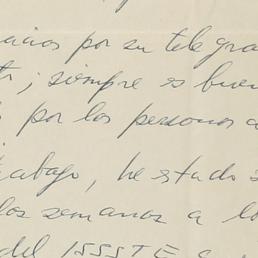 racias por su telegra
; siempre es bue
por las personas a
trabajo, he estado
dos semanas a lo
del ISSSTE